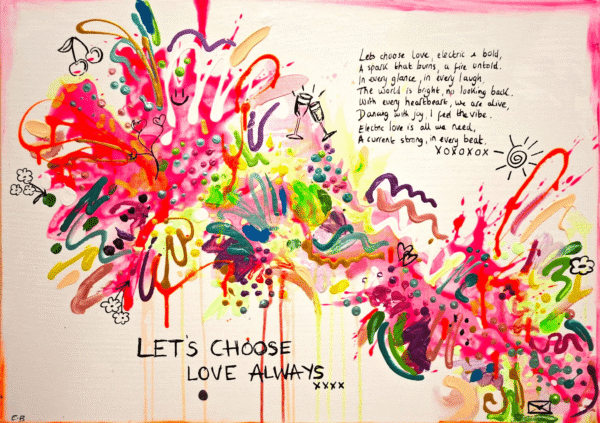 Lets choose love, electric & bold,
A spark that burns, a fire untold.
In every glance, in every laugh,
The world is bright, no looking back.
With every heartbeat, we are alive,
Dancing with joy, I feel the vibe.
Electric love is all we need,
A current strong, in every beat.
XOXOXOX
LET'S CHOOSE
LOVE ALWAYS
xxxx
E-B